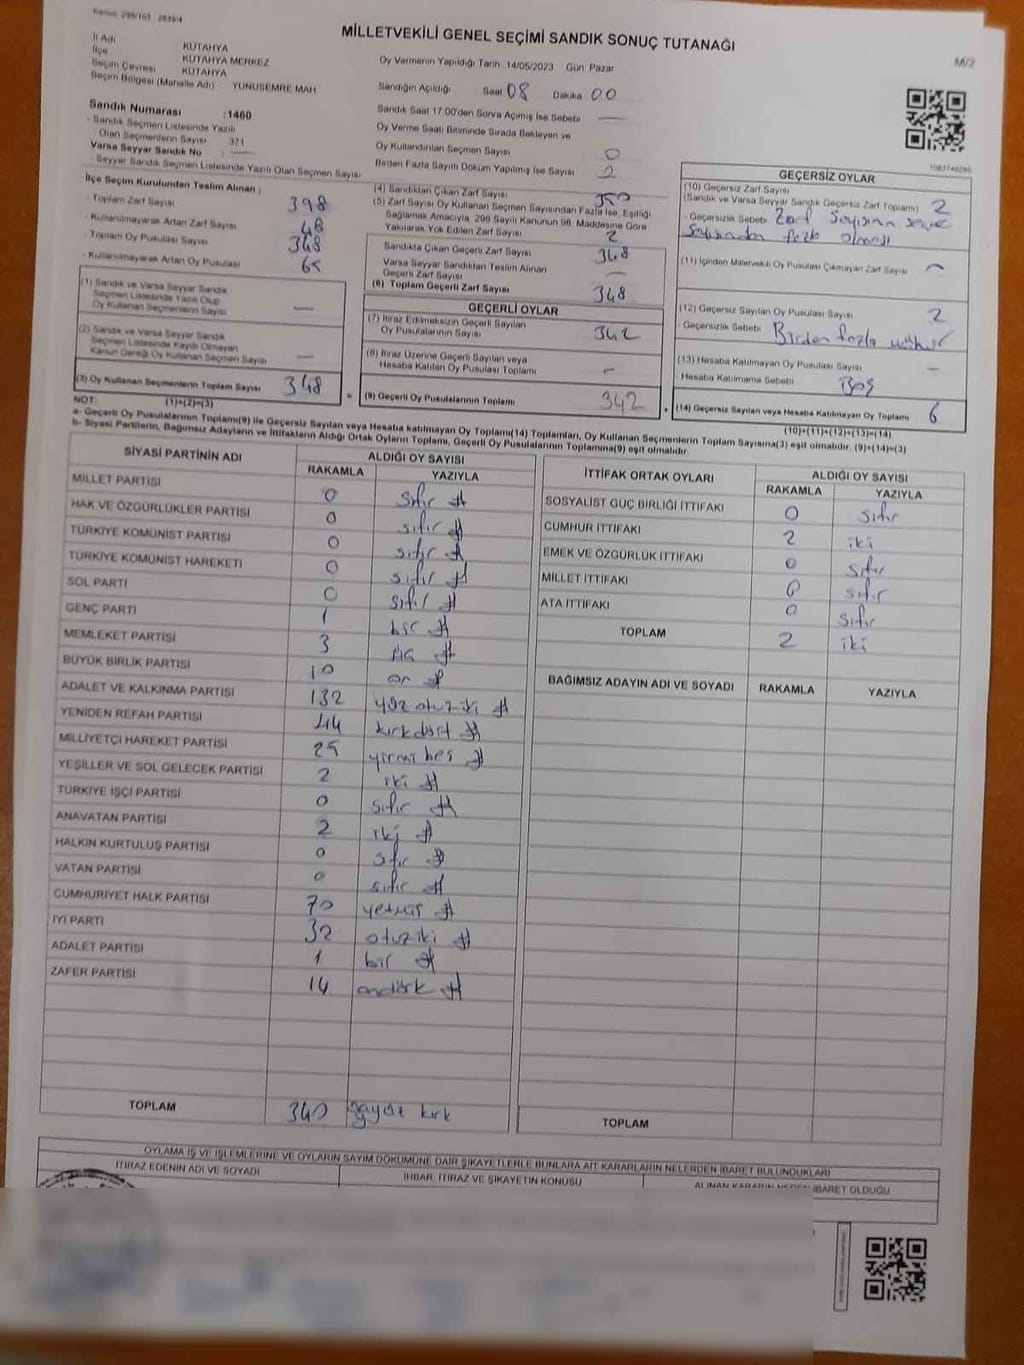 Kanun 298/103 2839/4
MİLLETVEKİLİ GENEL SEÇİMİ SANDIK SONUÇ TUTANAĞI
M/2
İl Adı KÜTAHYA
İlçe KÜTAHYA MERKEZ
Seçim Çevresi KÜTAHYA
Seçim Bölgesi (Mahalle Adı) YUNUSEMRE MAH.
Oy Vermenin Yapıldığı Tarih :14/05/2023 Gün: Pazar
Sandığın Açıldığı Saat 08 Dakika 00
Sandık Saat 17:00'den Sonra Açımış İse Sebebi —
Oy Verme Saati Bitiminde Sırada Bekleyen ve
Oy Kullandırılan Seçmen Sayısı 0
Birden Fazla Sayım Döküm Yapılmış İse Sayısı 2
Sandık Numarası :1460
- Sandık Seçmen Listesinde Yazılı
Olan Seçmenlerin Sayısı 371
Varsa Seyyar Sandık No : —
- Seyyar Sandık Seçmen Listesinde Yazılı Olan Seçmen Sayısı
İlçe Seçim Kurulundan Teslim Alınan ;
- Toplam Zarf Sayısı 398
- Kullanılmayarak Artan Zarf Sayısı 48
- Toplam Oy Pusulası Sayısı
- Kullanılmayarak Artan Oy Pusulası 65
(1) Sandık ve Varsa Seyyar Sandık
Seçmen Listesinde Yazılı Olup
Oy Kullanan Seçmenlerin Sayısı —
(2) Sandık ve Varsa Seyyar Sandık
Seçmen Listesinde Kayıtlı Olmayan
Kanun Gereği Oy Kullanan Seçmen Sayısı —
(3) Oy Kullanan Seçmenlerin Toplam Sayısı 348
(4) Sandıktan Çıkan Zarf Sayısı 350
(5) Zarf Sayısı Oy Kullanan Seçmen Sayısından Fazla İse, Eşitliği
Sağlamak Amacıyla, 298 Sayılı Kanunun 98. Maddesine Göre
Yakılarak Yok Edilen Zarf Sayısı 2
Sandıkta Çıkan Geçerli Zarf Sayısı 348
Varsa Seyyar Sandıktan Teslim Alınan
Geçerli Zarf Sayısı —
(6) Toplam Geçerli Zarf Sayısı 348
GEÇERLİ OYLAR
(7) İtiraz Edilmeksizin Geçerli Sayılan
Oy Pusulalarının Sayısı 342
(8) İtiraz Üzerine Geçerli Sayılan veya
Hesaba Katılan Oy Pusulası Toplamı -
(9) Geçerli Oy Pusulalarının Toplamı 342
1083148286
GEÇERSİZ OYLAR
(10) Geçersiz Zarf Sayısı
(Sandık ve Varsa Seyyar Sandık Geçersiz Zarf Toplamı) 2
- Geçersizlik Sebebi Zarf Sayısının
fazla olması
(11) İçinden Milletvekili Oy Pusulası Çıkmayan Zarf Sayısı -
(12) Geçersiz Sayılan Oy Pusulası Sayısı 2
- Geçersizlik Sebebi Birden fazla mühür
(13) Hesaba Katılmayan Oy Pusulası Sayısı —
- Hesaba Katılmama Sebebi Boş
(14) Geçersiz Sayılan veya Hesaba Katılmayan Oy Toplamı 6
NOT: (1)+(2)=(3)
(10)+(11)+(12)+(13)=(14)
a- Geçerli Oy Pusulalarının Toplamı(9) ile Geçersiz Sayılan veya Hesaba katılmayan Oy Toplamı(14) Toplamları, Oy Kullanan Seçmenlerin Toplam Sayısına(3) eşit olmalıdır. (9)+(14)=(3)
b- Siyasi Partilerin, Bağımsız Adayların ve İttifakların Aldığı Ortak Oyların Toplamı, Geçerli Oy Pusulalarının Toplamına(9) eşit olmalıdır.
SİYASİ PARTİNİN ADI ALDIĞI OY SAYISI
RAKAMLA YAZIYLA
MİLLET PARTİSİ 0 sıfır #
HAK VE ÖZGÜRLÜKLER PARTİSİ 0 sıfır #
TÜRKİYE KOMÜNİST PARTİSİ 0 sıfır #
TÜRKİYE KOMÜNİST HAREKETİ 0 sıfır #
SOL PARTİ 0 sıfır #
GENÇ PARTİ 1 bir #
MEMLEKET PARTİSİ 3 üç #
BÜYÜK BİRLİK PARTİSİ 10 on #
ADALET VE KALKINMA PARTİSİ 132 yüz otuziki #
YENİDEN REFAH PARTİSİ 44 kırkdört #
MİLLİYETÇİ HAREKET PARTİSİ 25 yirmi beş #
YEŞİLLER VE SOL GELECEK PARTİSİ 2 iki #
TÜRKİYE İŞÇİ PARTİSİ 0 sıfır #
ANAVATAN PARTİSİ 2 iki #
HALKIN KURTULUŞ PARTİSİ 0 sıfır #
VATAN PARTİSİ 0 sıfır #
CUMHURİYET HALK PARTİSİ 70 yetmiş #
İYİ PARTİ 32 otuziki #
ADALET PARTİSİ 1 bir #
ZAFER PARTİSİ 14 #
TOPLAM 340 kırk
İTTİFAK ORTAK OYLARI ALDIĞI OY SAYISI
RAKAMLA YAZIYLA
SOSYALİST GÜÇ BİRLİĞİ İTTİFAKI 0 sıfır
CUMHUR İTTİFAKI 2 iki
EMEK VE ÖZGÜRLÜK İTTİFAKI 0 sıfır
MİLLET İTTİFAKI 0 sıfır
ATA İTTİFAKI 0 sıfır
TOPLAM 2 iki
BAĞIMSIZ ADAYIN ADI VE SOYADI RAKAMLA YAZIYLA
TOPLAM
OYLAMA İŞ VE İŞLEMLERİNE VE OYLARIN SAYIM DÖKÜMÜNE DAİR ŞİKAYETLERLE BUNLARA AİT KARARLARIN NELERDEN İBARET BULUNDUKLARI
İTİRAZ EDENİN ADI VE SOYADI
İHBAR, İTİRAZ VE ŞİKAYETİN KONUSU
ALINAN KARARIN NEDEN İBARET OLDUĞU